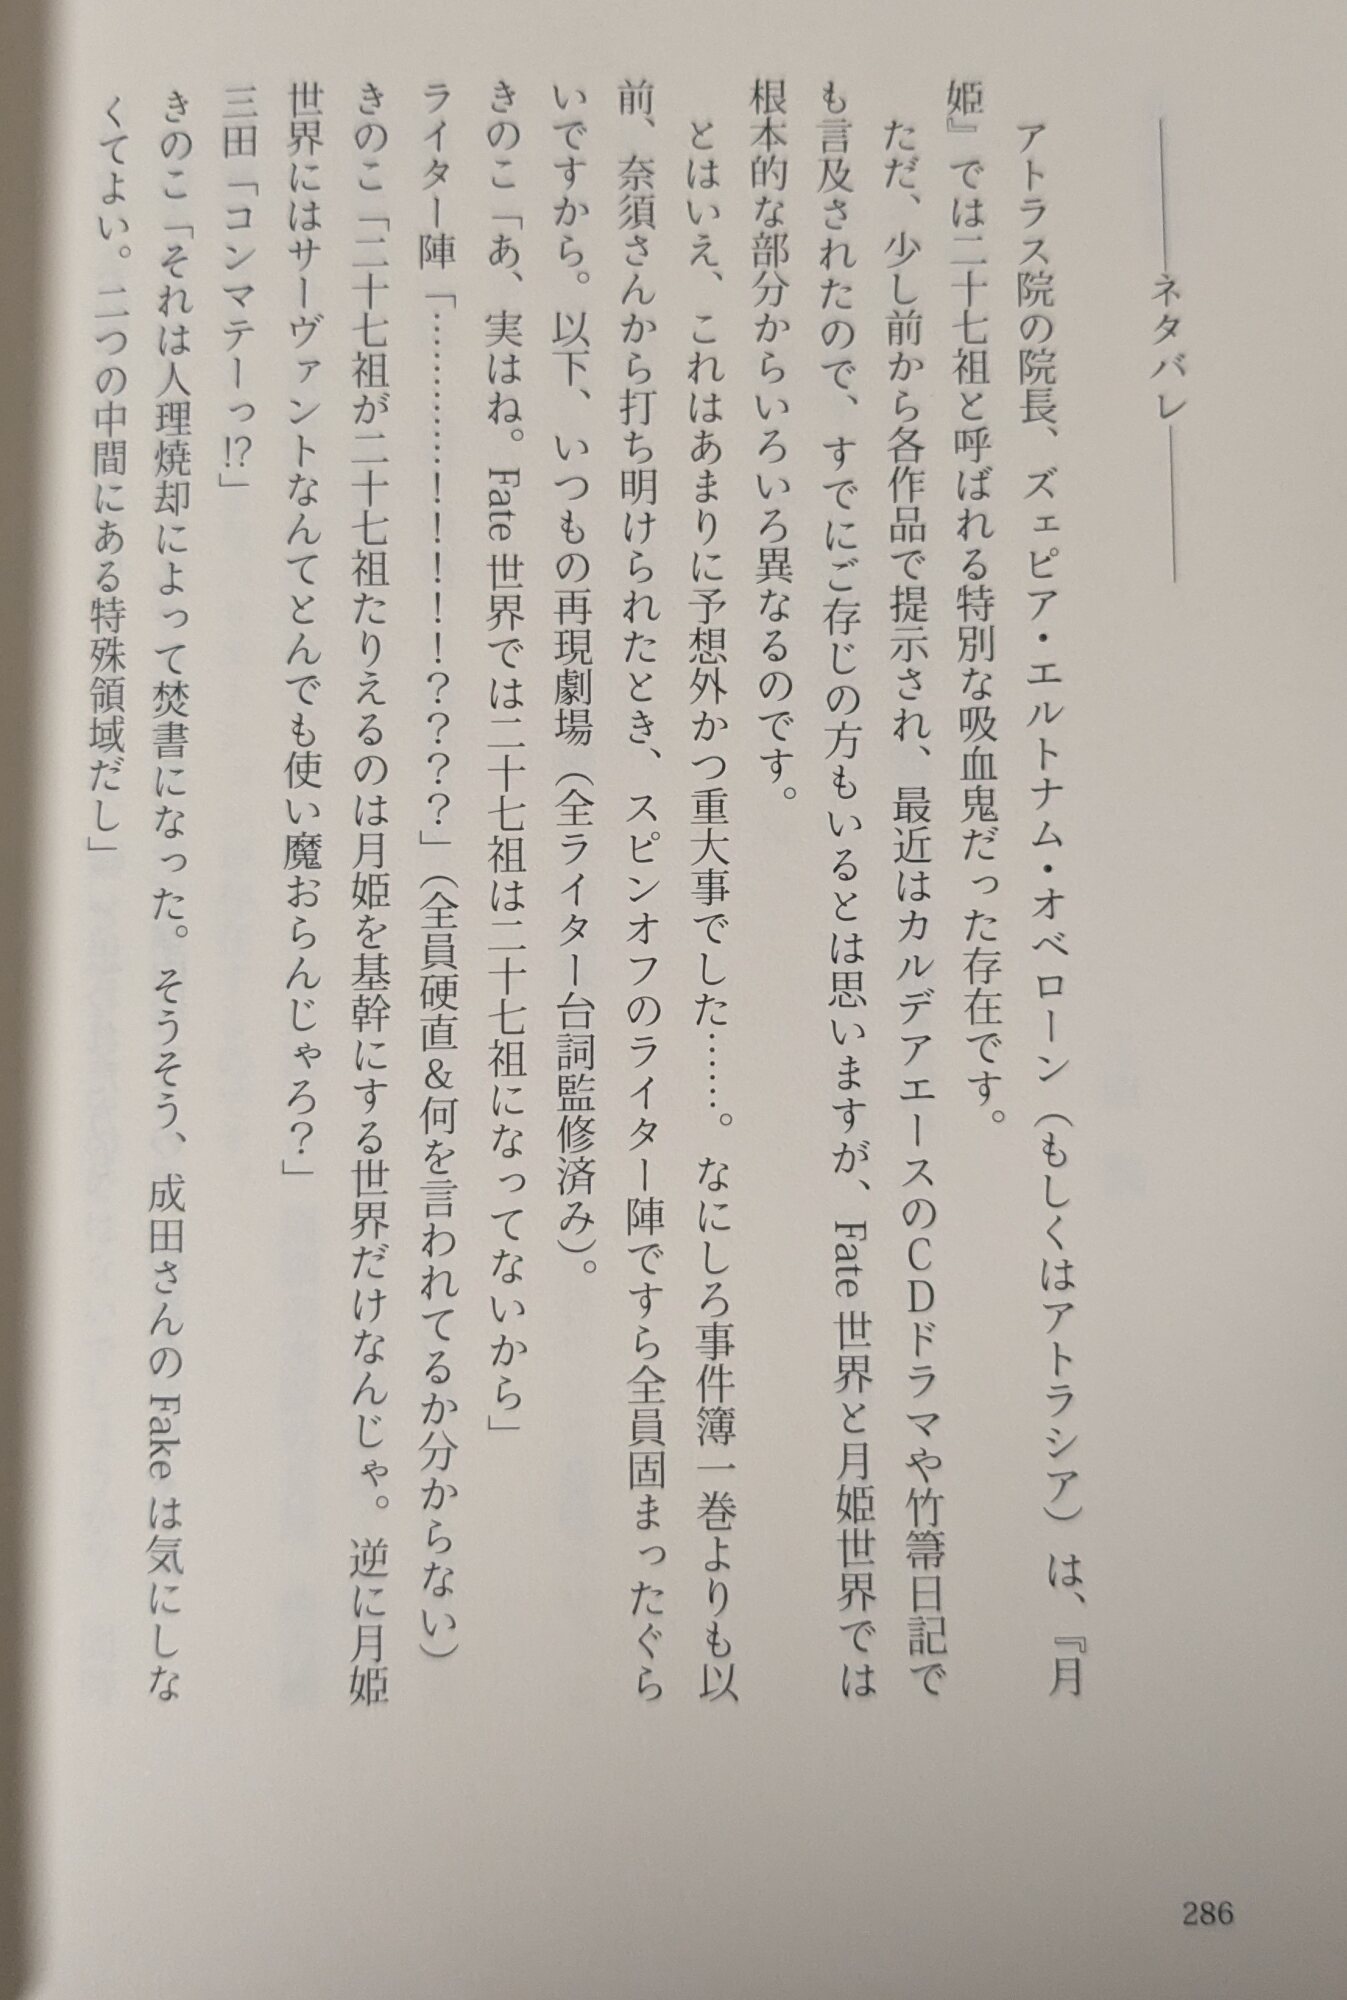 ――――ネタバレ――――
アトラス院の院長、ズェピア・エルトナム・オベローン（もしくはアトラシア）は、『月
姫』では二十七祖と呼ばれる特別な吸血鬼だった存在です。
ただ、少し前から各作品で提示され、最近はカルデアエースのＣＤドラマや竹箒日記で
も言及されたので、すでにご存じの方もいるとは思いますが、Fate 世界と月姫世界では
根本的な部分からいろいろ異なるのです。
とはいえ、これはあまりに予想外かつ重大事でした……。なにしろ事件簿一巻よりも以
前、奈須さんから打ち明けられたとき、スピンオフのライター陣ですら全員固まったぐら
いですから。以下、いつもの再現劇場（全ライター台詞監修済み）。
きのこ「あ、実はね。Fate 世界では二十七祖は二十七祖になってないから」
ライター陣「…………！！！！！？？？？」（全員硬直＆何を言われてるか分からない）
きのこ「二十七祖が二十七祖たりえるのは月姫を基幹にする世界だけなんじゃ。逆に月姫
世界にはサーヴァントなんてとんでも使い魔おらんじゃろ？」
三田「コンマテーっ⁉」
きのこ「それは人理焼却によって焚書になった。そうそう、成田さんの Fake は気にしな
くてよい。二つの中間にある特殊領域だし」
286